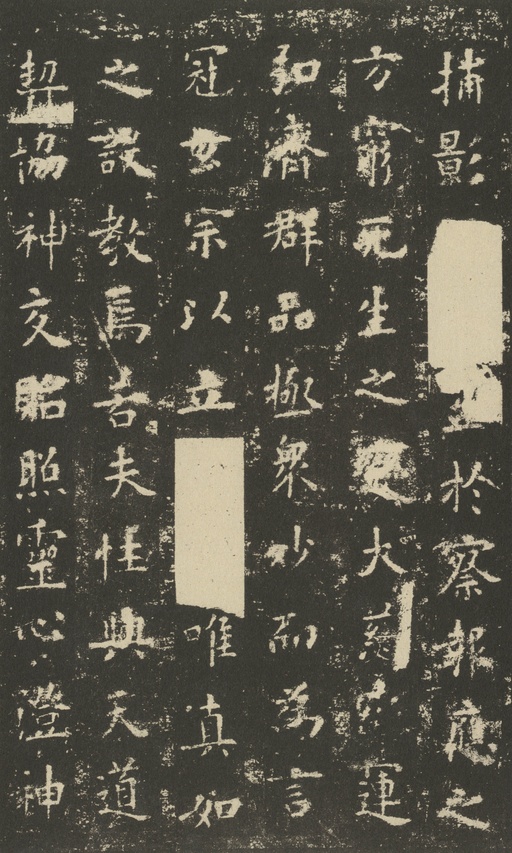 捕影於察報應之
方窮死生之變大慈底運
弘濟群品極衆妙而為言
冠玄宗以立唯真如
之設教焉若夫性與天道
契協神交昭照靈心澄神